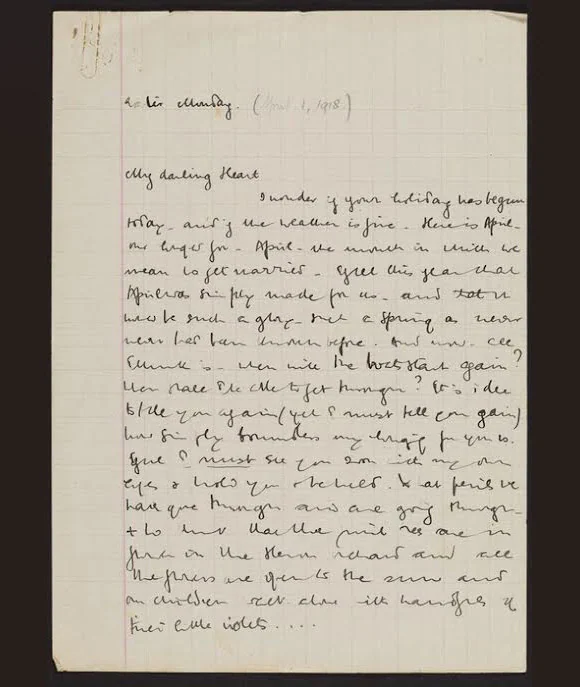 Easter Monday. (April 1, 1918)
My darling Heart
I wonder if your holiday has begun
today - and if the weather is fine. Here is April -
our longed for - April - the month in which we
mean to get married. I feel this year that
April was simply made for us - and that it
must be such a glory - such a spring as never
never had been known before. And now - all
I think is - when will the boats start again?
When shall I be able to get through? It is idle
to tell you again (yet I must tell you again)
how simply boundless my longing for you is.
I feel I must see you soon with my own
eyes & hold you & be held. What perils we
have gone through and are going through -
& to think that the are in
on the Heron orchard and all
the flowers are open to the sun and
our children with handfuls of
their little violets. . . .